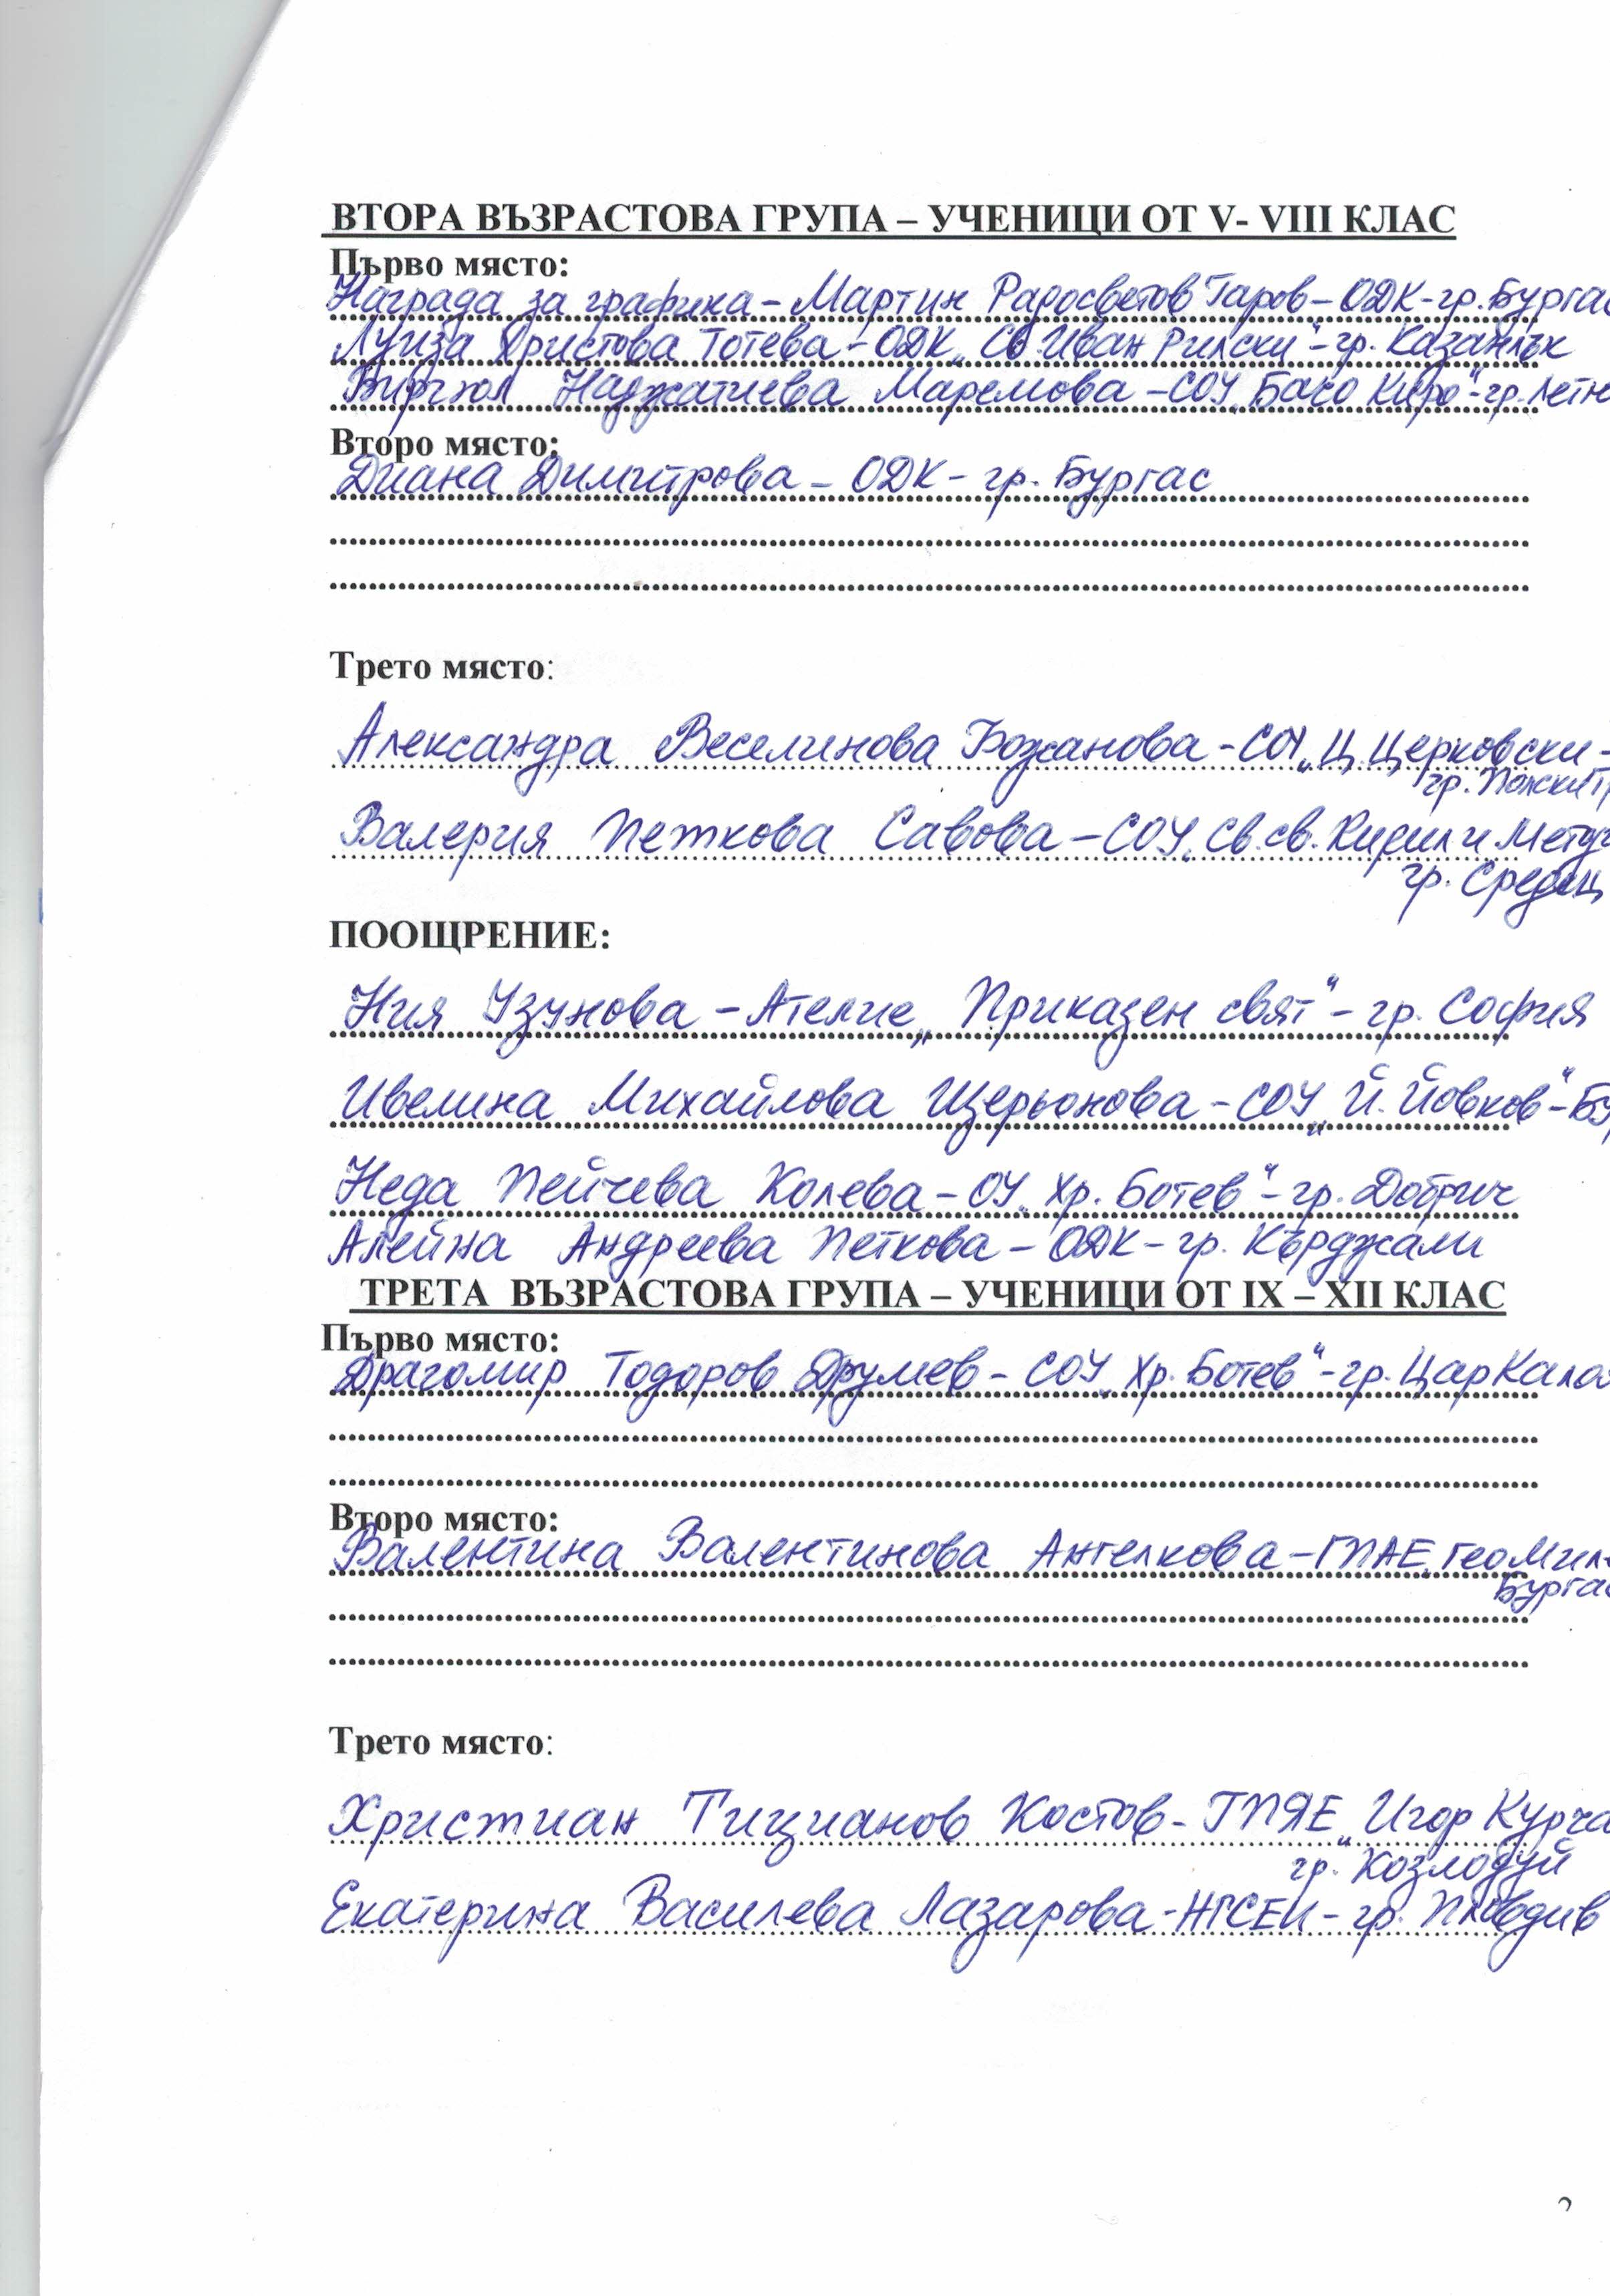 ВТОРА ВЪЗРАСТОВА ГРУПА – УЧЕНИЦИ ОТ V- VIII КЛАС
Първо място:
Награда за графика – Мартин Радосветов Гаров – ОДК - гр. Бургас
Луиза Христова Тотева – ОДК „Св. Иван Рилски" - гр. Казанлък
Наджатиева Маремова – СОУ „Бачо Киро" - гр.
Второ място:
Диана Димитрова – ОДК - гр. Бургас
Трето място:
Александра Веселинова Божанова – СОУ „Ц. Церковски -
гр.
Валерия Петкова Савова – СОУ „Св. св. Кирил и
гр. Средец
ПООЩРЕНИЕ:
Ния Узунова – Ателие „Приказен свят" - гр. София
Ивелина Михайлова Щерьонова – СОУ „Й. Йовков" -
Неда Пейчева Колева – ОУ „Хр. Ботев" - гр. Добрич
Алейна Андреева Петкова – ОДК – гр. Кърджали
ТРЕТА ВЪЗРАСТОВА ГРУПА – УЧЕНИЦИ ОТ IX – XII КЛАС
Първо място:
Драгомир Тодоров Друмев – СОУ „Хр. Ботев" - гр. Цар
Второ място:
Валентина Валентинова Ангелкова – ГПАЕ „Гео
Бургас
Трето място:
Християн Тицианов Костов - ГПЯЕ „Игор
гр. Козлодуй
Екатерина Василева Лазарова - НГСЕИ - гр. Пловдив